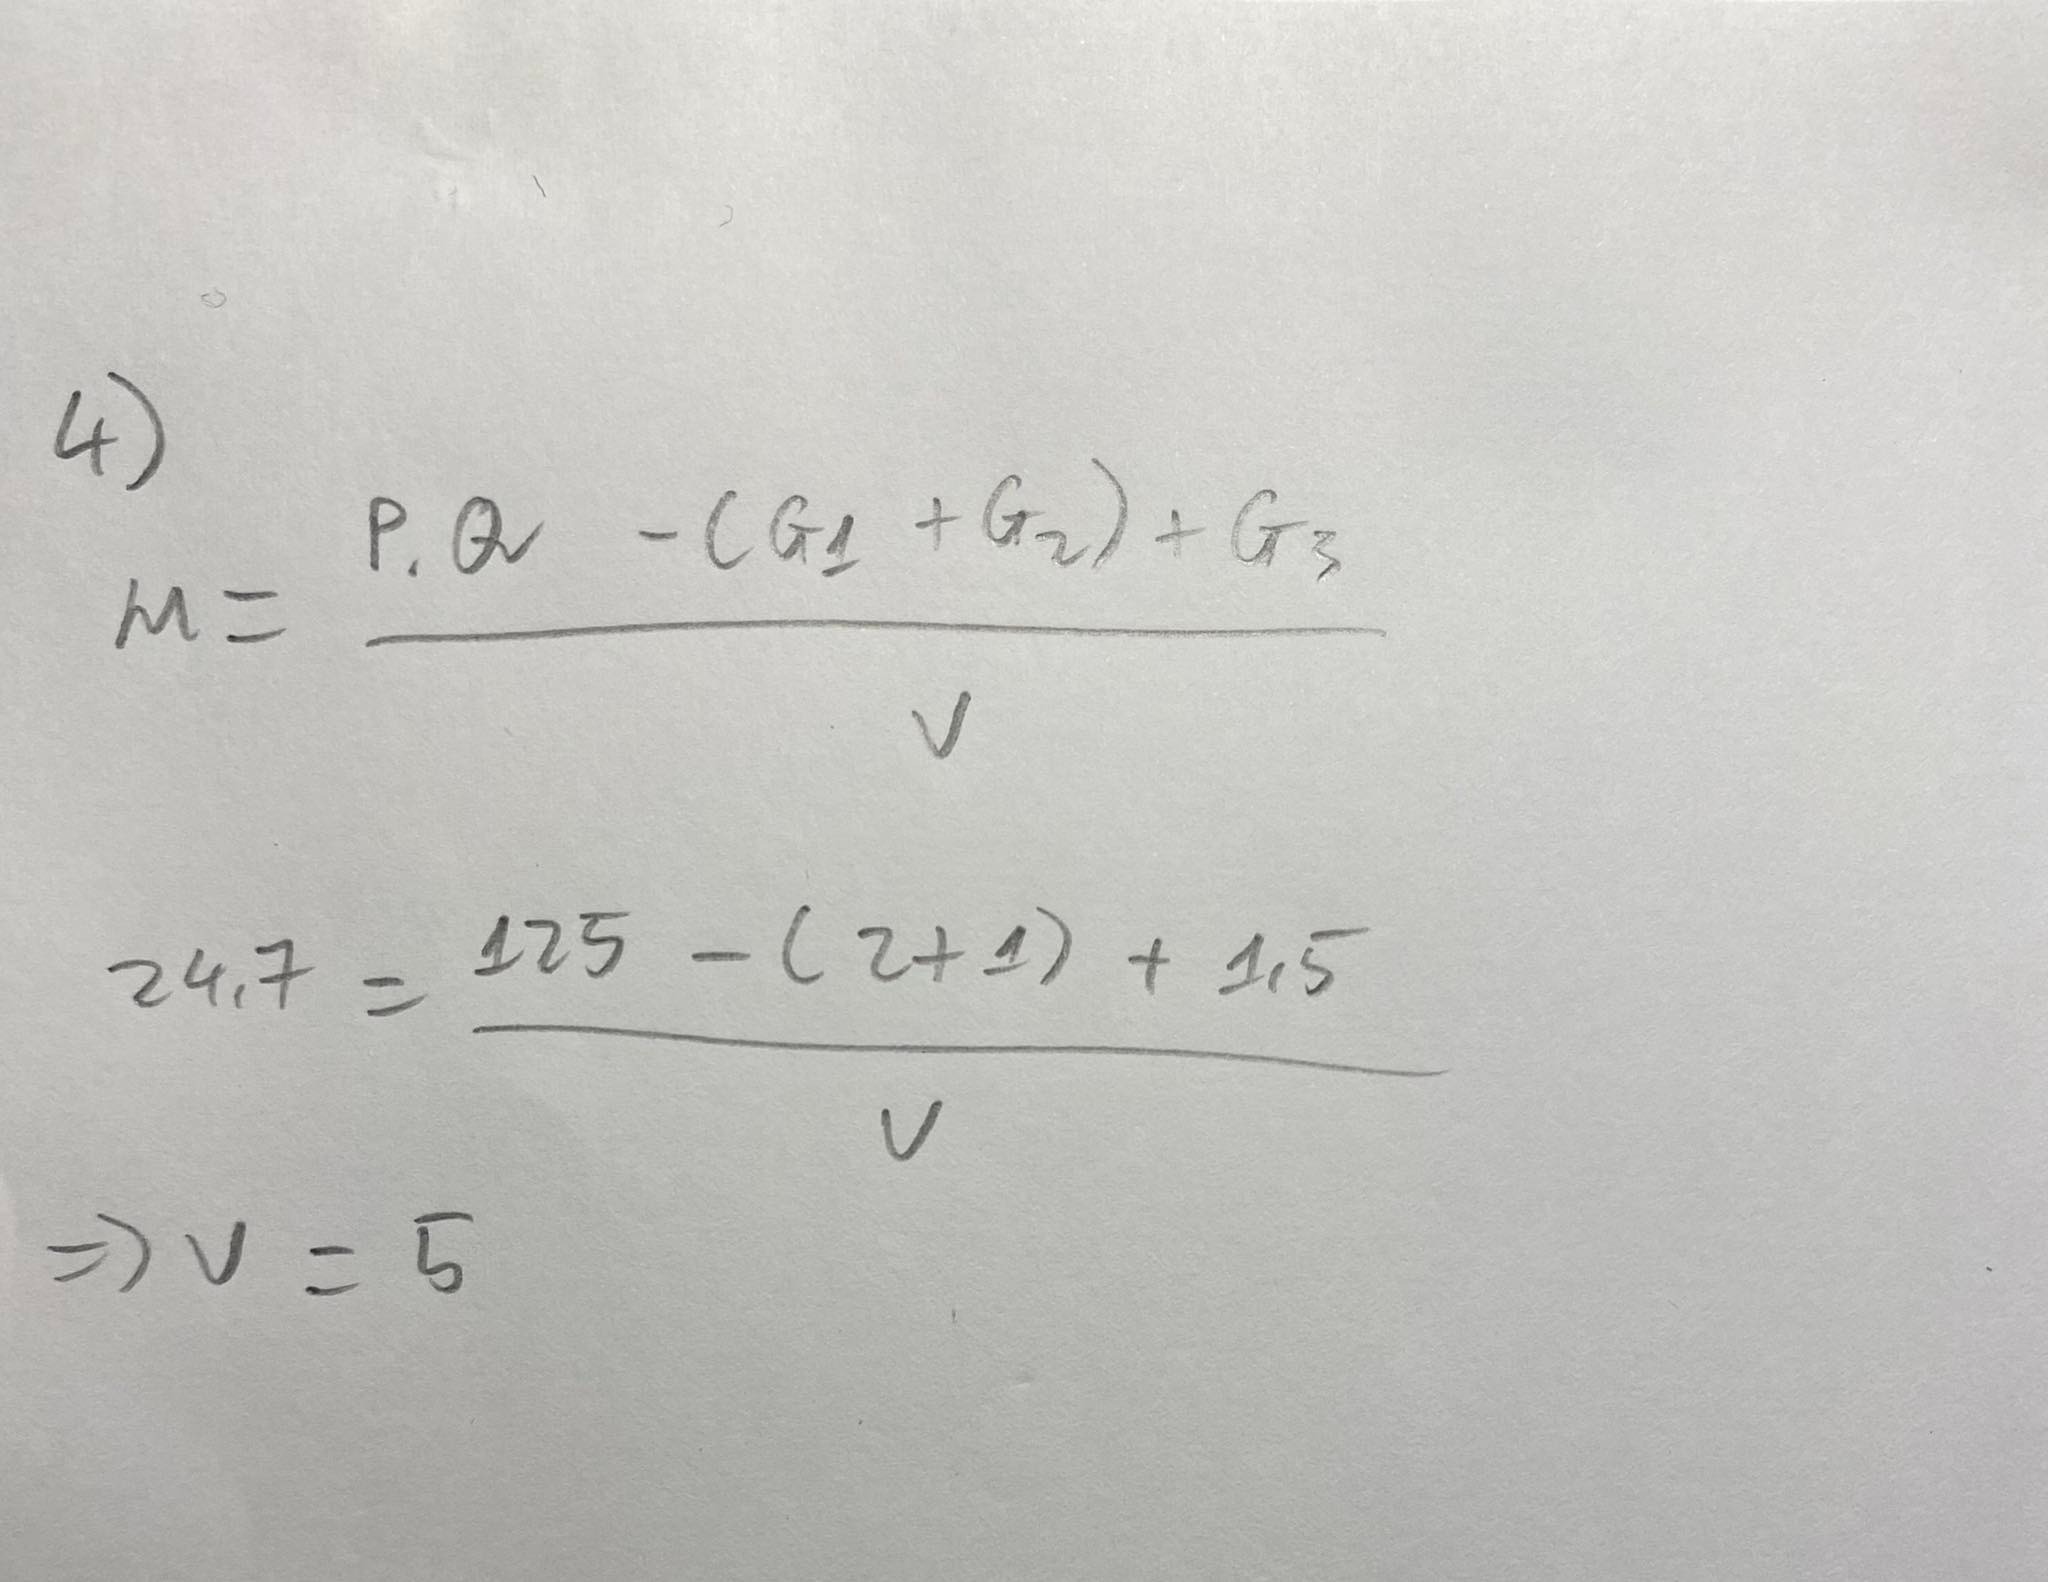 4)
M = P.Q - (G1 + G2) + G3
V
24,7 = 125 - (2+1) + 1,5
V
=> V = 5